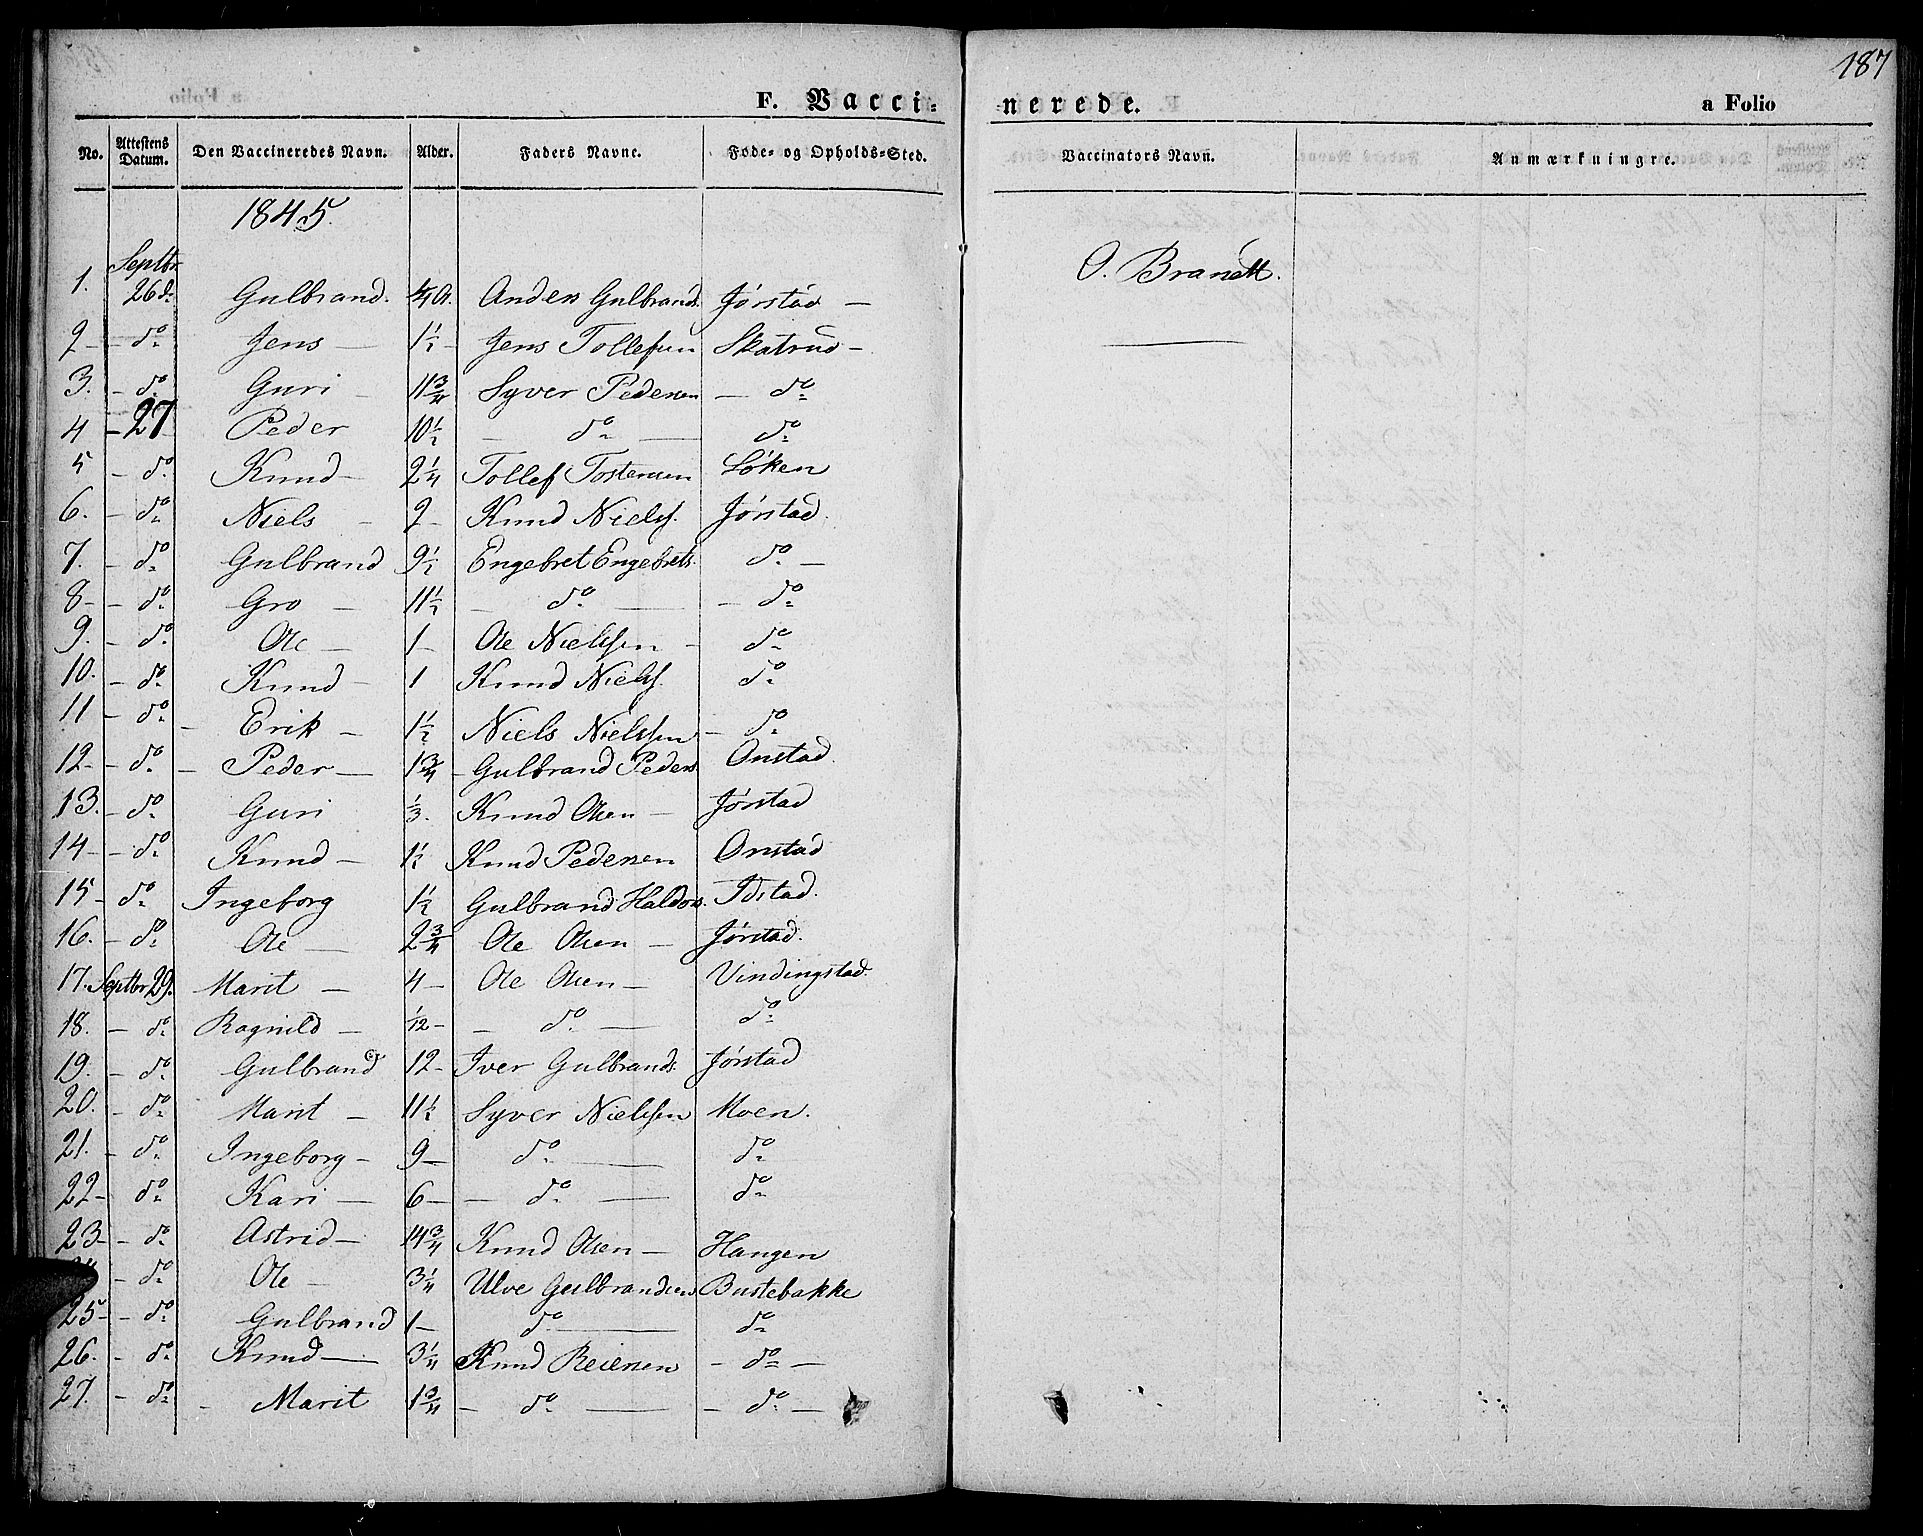 187
F. Vacci-
nerede.
a Folio
No. Attestens Datum. Den Vaccineredes Navn. Alder. Faders Navne. Føde- og Opholds-Sted. Vaccinators Navn. Anmærkningre.
1845.
1. Septbr 26 d: Gulbrand. Anders Gulbrands. Jørstad — O. Brandt.
2 - do Jens 1½ - Jens Tollefsen Skatrud -
3. - do Guri 11¾ Syver Pedersen - do
4 - 27 Peder 10½ - do - do
5 - do Knud - 2¼ Tollef Tostensen Løken
6. - do Niels - 2 - Knud Nielss. Jørstad.
7. - do Gulbrand 9½ Engebret Engebrets. do -
8 - - do Gro - 11½ - do - - do
9. - do Ole - 1 - Ole Nielssen - do
10. - do Knud - 1 Knud Nielss. do
11 - do - Erik - 1½ Niels Nielssen - do
12 - - do - Peder - 1¾ - Gulbrand Peders. Onstad.
13. - do Guri ⅓. Knud Olsen - Jørstad
14 - - do Knud - 1½ Knud Pedersen Onstad
15 - do Ingeborg 1½ Gulbrand Haldors. Idstad.
16. - do Ole - 2¾ Ole Olsen - Jørstad.
17. Septbr 29. Marit - 4 - Ole Olsen - Vindingstad.
18. - do Ragnild - 1/12 - - do - do
19. - do Gulbrand 12 - Iver Gulbrands. Jørstad
20. - do Marit - 11½ Syver Nielssen Moen.
21. - do Ingeborg - 9 - do - do
22 - do Kari - 6 - - do - do
23 - - do Astrid - 14¾ Knud Olsen - Haugen
- do Ole - 3¼ Ulve Gulbrandsen Bustebakke
25 - - do Gulbrand 1 - do - do
26. - do Knud - 3¼ Knud Reiersen - do -
27. - do - Marit 1¾ - do - - do -